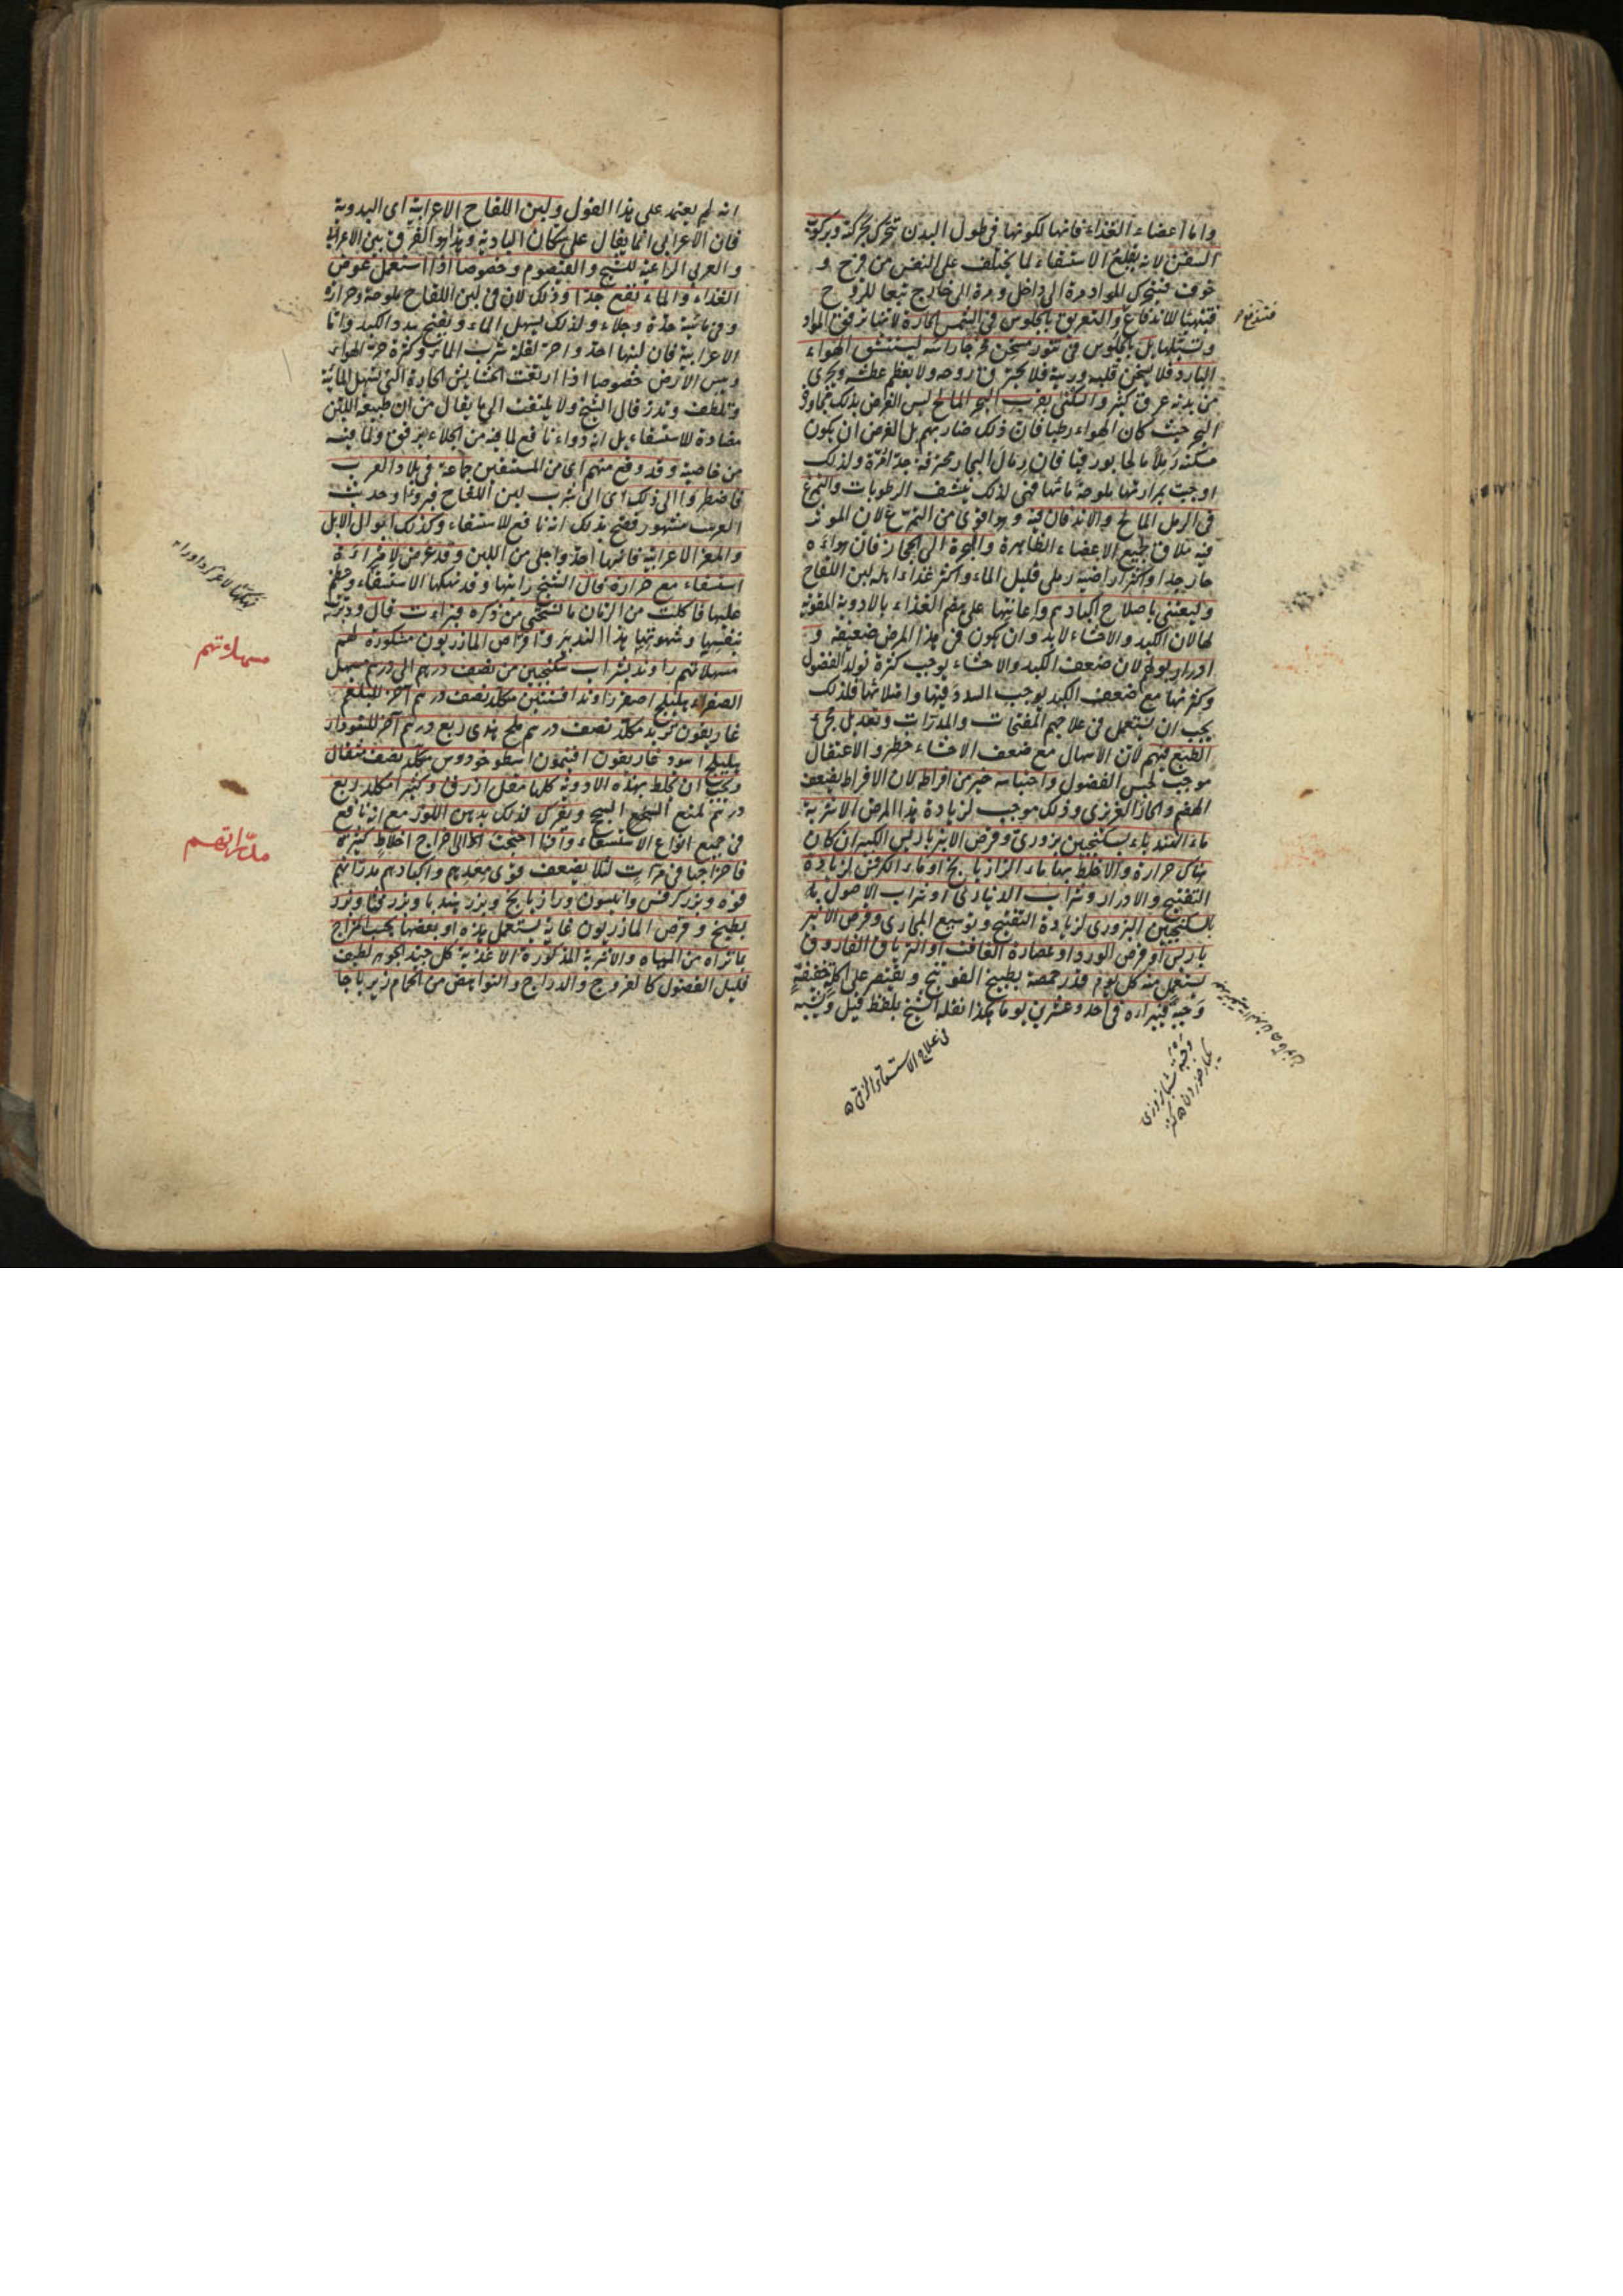 واما اعضاء الغذاء فانها لكونها فى طول البدن تتحرك بحركة وبركوب
السفن لانه يقلع الاستسقاء لما يختلف على النفس من فرح و
خوف فيتحرك المواد مرة الى داخل ومرة الى خارج تبعا للروح
فيتهيأ للاندفاع والتعريق بالجلوس فى الشمس الحارة لانها ترقق المواد
وتسيلها بل بالجلوس فى تنور مسخن مخرجا راسه ليستنشق الهواء
البارد فلا يسخن قلبه وريته فلا يحترق روحه ولا يعظم عطشه ويجرى
من بدنه عرق كثير والسكنى بقرب البحر المالح ليس الغرض بذلك مجاورة
البحر حيث كان الهواء رطبا فان ذلك ضار بهم بل الغرض ان يكون
مسكنه رملا مالحا بورقيا فان رمال البحار محترقة جدا لمرة ولذلك
اوجبت بمرارتها ملوحة مائها فهى لذلك ينشف الرطوبات والتمرغ
فى الرمل المالح والاندفان فيه وهو اقوى من التمرغ لان الموثر
فيه ملاق جميع الاعضاء الظاهرة والهجرة الى الحجاز فان هواءه
حار جدا واكثر اراضيه رملى قليل الماء واكثر غذاء اهله لبن اللقاح
وليعتنى باصلاح اكبادهم واعانتها على هضم الغذاء بالادوية المقوية
لها لان الكبد والاحشاء لابد وان يكون فى هذا المرض ضعيفة و
ادرار بولهم لان ضعف الكبد والاحشاء يوجب كثرة تولد الفضول
وكثرتها مع ضعف الكبد يوجب السدد فيها وامتلائها فلذلك
يجب ان يستعمل فى علاجهم المفتحات والمدرات وتعديل مجئ
الطبع فيهم لان الاسهال مع ضعف الاحشاء خطر والاعتقال
موجب لحبس الفضول واحتباسه خير من افراط لان الافراط يضعف
الهضم والحار الغريزى وذلك موجب لزيادة هذا المرض الاشربة
ماء الهندباء بسكنجبين بزورى وقرص الانبرباريس الكبير ان كان
هناك حرارة والا خلط بها ماء الرازيانج او ماء الكرفس لزيادة
التفتيح والادرار وشراب الدينارى او شراب الاصول به
بالسكنجبين البزورى لزيادة التفتيح وتوسيع المجارى وقرص الانبر
باريس او قرص الورد او عصارة الغافت او الترياق الفاروق
يستعمل منه كل يوم قدر حمصة بطبيخ الفوتنج ويقتصر على اكلة خفيفة
وجبة فيبراءه فى احد وعشرين يوما هكذا نقله الشيخ بلفظ قيل ويشبه
فتندفع
وجبة شبانروزى
يكبار خوردن
فى علاج الاستسقاء الزقى
انه لم يعتمد على هذا القول ولبن اللقاح الاعرابية اى البدوية
فان الاعرابى انما يقال على سكان البادية وهذا هو الفرق بين الاعرابى
والعربى الراعية للشيح والقيصوم وخصوصا اذا استعمل عوض
الغذاء والماء نفع جدا وذلك لان فى لبن اللقاح ملوحة وحرارة
وفى مائيته حدة وجلاء ولذلك يسهل الماء ويفتح سدد الكبد واما
الاعرابية فان لبنها احد واحر لقلة شرب الماء وكثرة حر الهواء
ويبس الارض خصوصا اذا ارتعت الحشايش الحارة التى تسهل المائية
وتلطف وتدر قال الشيخ ولا يلتفت الى ما يقال من ان طبيعة اللبن
مضادة للاستسقاء بل انه دواء نافع لما فيه من الجلاء برفق ولما فيه
من خاصية وقد وقع منهم اى من المستسقين جماعة فى بلاد العرب
فاضطروا الى ذلك اى الى شرب لبن اللقاح فبروا وحديث
العرب مشهور فصح بذلك انه نافع للاستسقاء وكذلك ابوال الابل
والمعز الاعرابية فانها احد واجلى من اللبن وقد عرض لامراءة
استسقاء مع حرارة قال الشيخ رائتها وقد نهكها الاستسقاء وعظم
عليها فاكلت من الرمان ما نستحى من ذكره فبراءت قال ودبرت
بنفسها وشهوتها هذا التدبير واقراص المازريون مشكورة لهم
مسهلاتهم راوند بشراب سكنجبين من نصف درهم الى درهم مسهل
الصفراء هليلج اصفر راوند افسنتين مكلد نصف درهم آخر للبلغم
غاريقون تربد مكلد نصف درهم ملح هندى ربع درهم آخر للسوداء
هليلج اسود غاريقون افتيمون اسطوخودوس مكلد نصف مثقال
ويجب ان يخلط بهذه الادوية كلها مقل ازرق وكثيرا مكلد ربع
درهم لمنع السحج ويفرك لذلك بدهن اللوز مع انه نافع
فى جميع انواع الاستسقاء واذا احتجت الى اخراج اخلاط كثيرة
فاخراجها فى مرات لئلا يضعف قوى معدهم واكبادهم مدراتهم
فوه وبزر كرفس وانيسون ورازيانج وبزر هندبا وبزر قثا وبزر
بطيخ وقرص المازريون غاية يستعمل هذه او بعضها بحسب المزاج
ما تراه من المياه والاشربة المذكورة الاغذية كل جيد الجوهر لطيف
قليل الفضول كالفروج والدراج والنواهض من الحمام زيرباجا
مسهلاتهم
مدراتهم